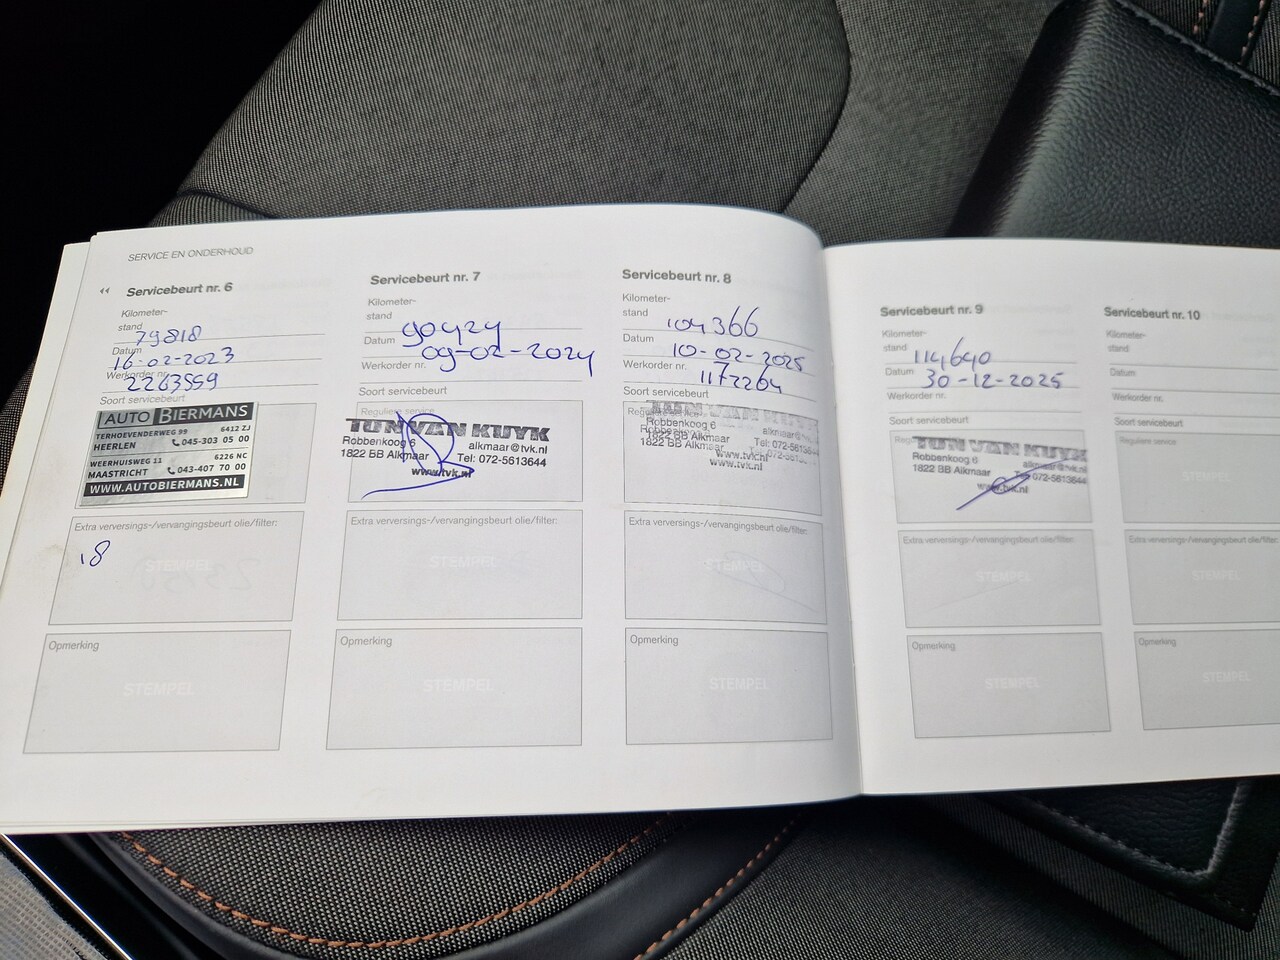 SERVICE EN ONDERHOUD
Servicebeurt nr. 6
Kilometer-
stand 79818
Datum 16-02-2023
Werkorder nr. 2263559
Soort servicebeurt
AUTO BIERMANS
TERHOEVENDERWEG 99 6412 ZJ
HEERLEN 045-303 05 00
WEERHUISWEG 11 6226 NC
MAASTRICHT 043-407 70 00
WWW.AUTOBIERMANS.NL
Extra verversings-/vervangingsbeurt olie/filter:
STEMPEL
Opmerking
STEMPEL
Servicebeurt nr. 7
Kilometer-
stand 90424
Datum 09-02-2024
Werkorder nr.
Soort servicebeurt
Reguliere service
TON VAN KUYK
Robbenkoog 6 alkmaar@tvk.nl
1822 BB Alkmaar Tel: 072-5613644
www.tvk.nl
Extra verversings-/vervangingsbeurt olie/filter:
STEMPEL
Opmerking
STEMPEL
Servicebeurt nr. 8
Kilometer-
stand 104366
Datum 10-02-2025
Werkorder nr. 1172264
Soort servicebeurt
Reguliere service
TON VAN KUYK
Robbenkoog 6
1822 BB Alkmaar Tel: 072-5613644
1822 BB Alkmaar www.tvk.nl
www.tvk.nl
Extra verversings-/vervangingsbeurt olie/filter:
STEMPEL
Opmerking
STEMPEL
Servicebeurt nr. 9
Kilometer-
stand 114640
Datum 30-12-2025
Werkorder nr.
Soort servicebeurt
TON VAN KUYK
Robbenkoog 6 alkmaar@tvk.nl
1822 BB Alkmaar Tel: 072-5613644
www.tvk.nl
Extra verversings-/vervangingsbeurt olie/filter:
STEMPEL
Opmerking
STEMPEL
Servicebeurt nr. 10
Kilometer-
stand
Datum
Werkorder nr.
Soort servicebeurt
Reguliere service
STEMPEL
Extra verversings-/vervangingsbeurt olie/filter:
STEMPEL
Opmerking
STEMPEL